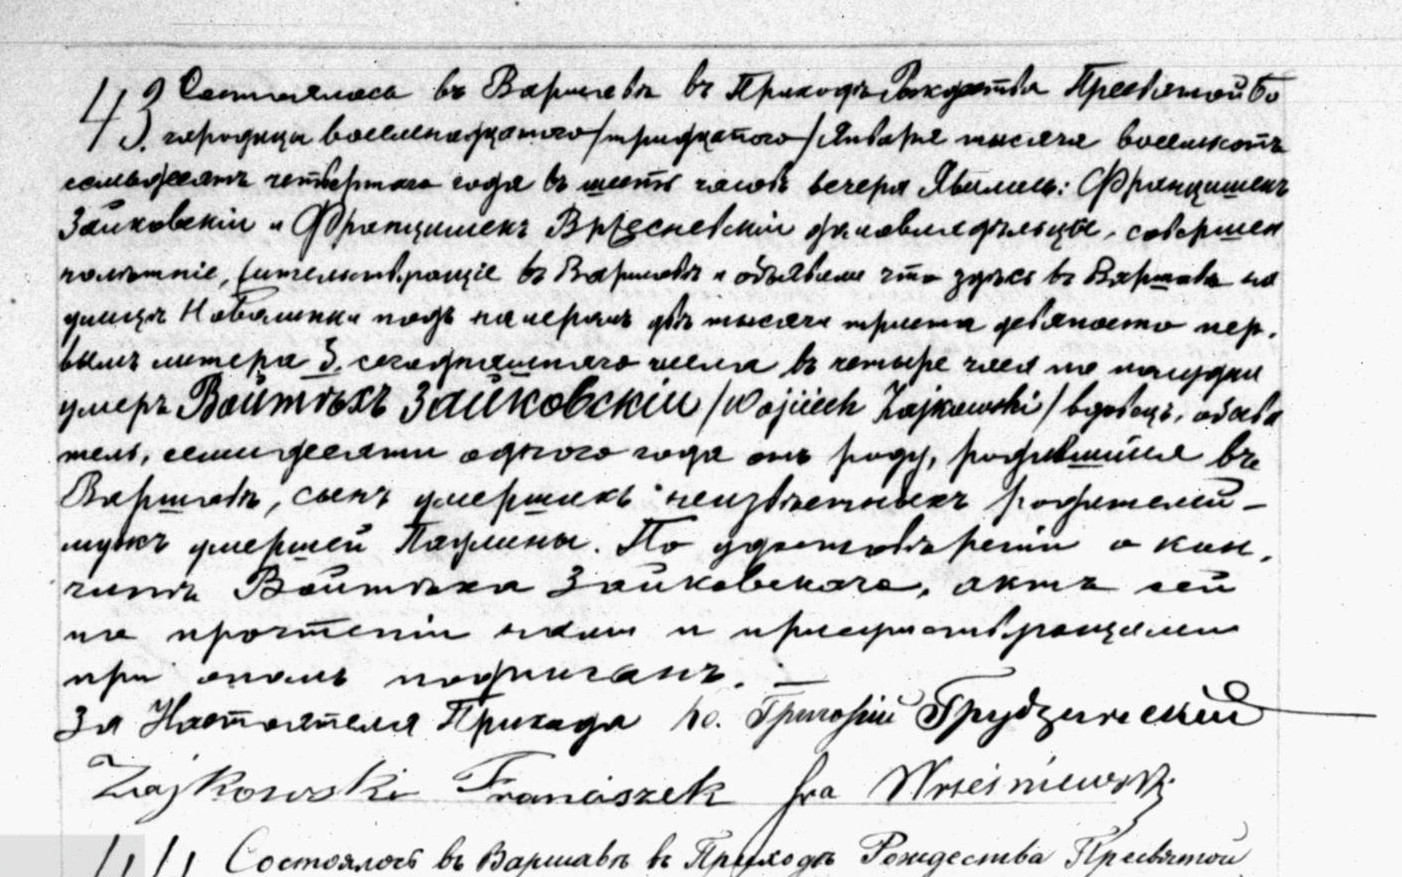 43. Состоялось въ Варшавѣ въ Приходѣ Рождества Пресвятой Бо
городицы восемнадцатого /тридцатого/ Января тысяча восемьсотъ
семьдесятъ четвертаго года въ шесть часовъ вечера Явились: Францишекъ
Зайковскій и Францишекъ Вржесневскій домовладѣльцы, совершен
нолѣтніе, жительствующіе въ Варшавѣ и объявили что здѣсь въ Варшавѣ на
улицѣ Новолипки подъ номеромъ двѣ тысячи триста девяносто пер.
вымъ литера З. сегодняшняго числа въ четыре часа по полудни
умеръ Войтѣхъ Зайковскій /Wojciech Zajkowski/ вдовецъ, обыва
тель, семидесяти одного года отъ роду, родившійся въ
Варшавѣ, сынъ умершихъ неизвѣстныхъ родителей –
мужъ умершей Паулины. По удостовѣреніи о кон.
чинѣ Войтѣха Зайковскаго, актъ сей
по прочтеніи нами и присутствующими
при ономъ подписанъ. –
За Настоятеля Прихода Кс. Григорій Грудзинскій
Zajkowski Franciszek Fra Wrześniewski
44 Состоялось въ Варшавѣ въ Приходѣ Рождества Пресвятой